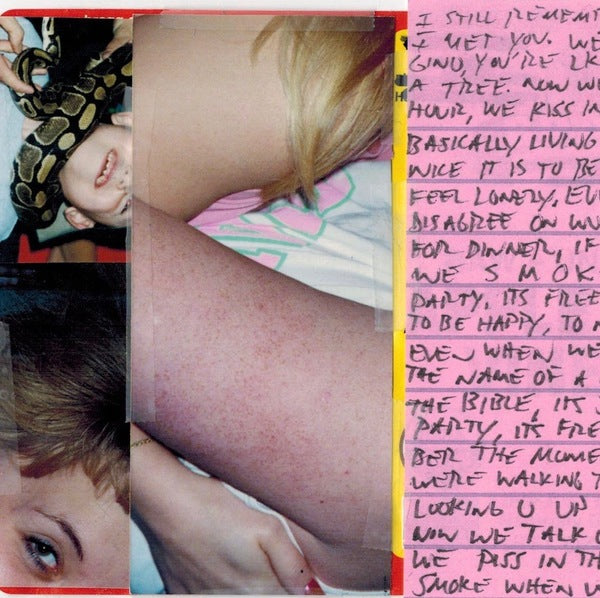 I STILL REMEM
I MET YOU. WE
GINO, YOU'RE LK
A TREE. NOW WE
HOUR, WE KISS IN
BASICALLY LIVING
NICE IT IS TO BE
FEEL LONELY, EV
DISAGREE ON
FOR DINNER, IF
WE SMOK
PARTY, ITS FREE
TO BE HAPPY, TO
EVEN WHEN WE
THE NAME OF A
THE BIBLE, ITS
PARTY, ITS FRE
BER THE MOME
WERE WALKING T
LOOKING U UP
NOW WE TALK
WE PISS IN TH
SMOKE WHEN W